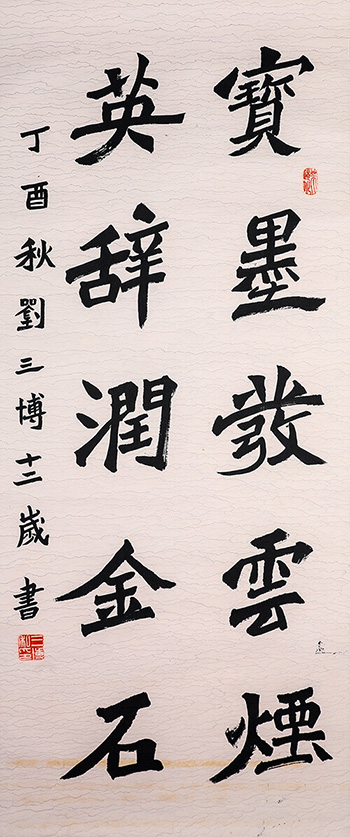 寶墨發雲煙
英辞潤金石
丁酉秋劉三博十二歲書